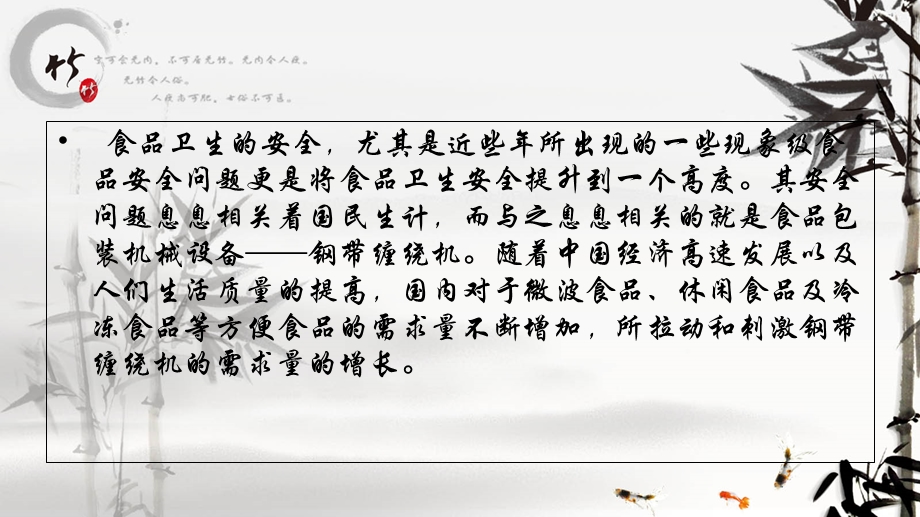 竹
竹
宁可食无肉，不可居无竹。无肉令人瘦，
无竹令人俗。
人瘦尚可肥，士俗不可医。
• 食品卫生的安全，尤其是近些年所出现的一些现象级食
品安全问题更是将食品卫生安全提升到一个高度。其安全
问题息息相关着国民生计，而与之息息相关的就是食品包
装机械设备——钢带缠绕机。随着中国经济高速发展以及
人们生活质量的提高，国内对于微波食品、休闲食品及冷
冻食品等方便食品的需求量不断增加，所拉动和刺激钢带
缠绕机的需求量的增长。